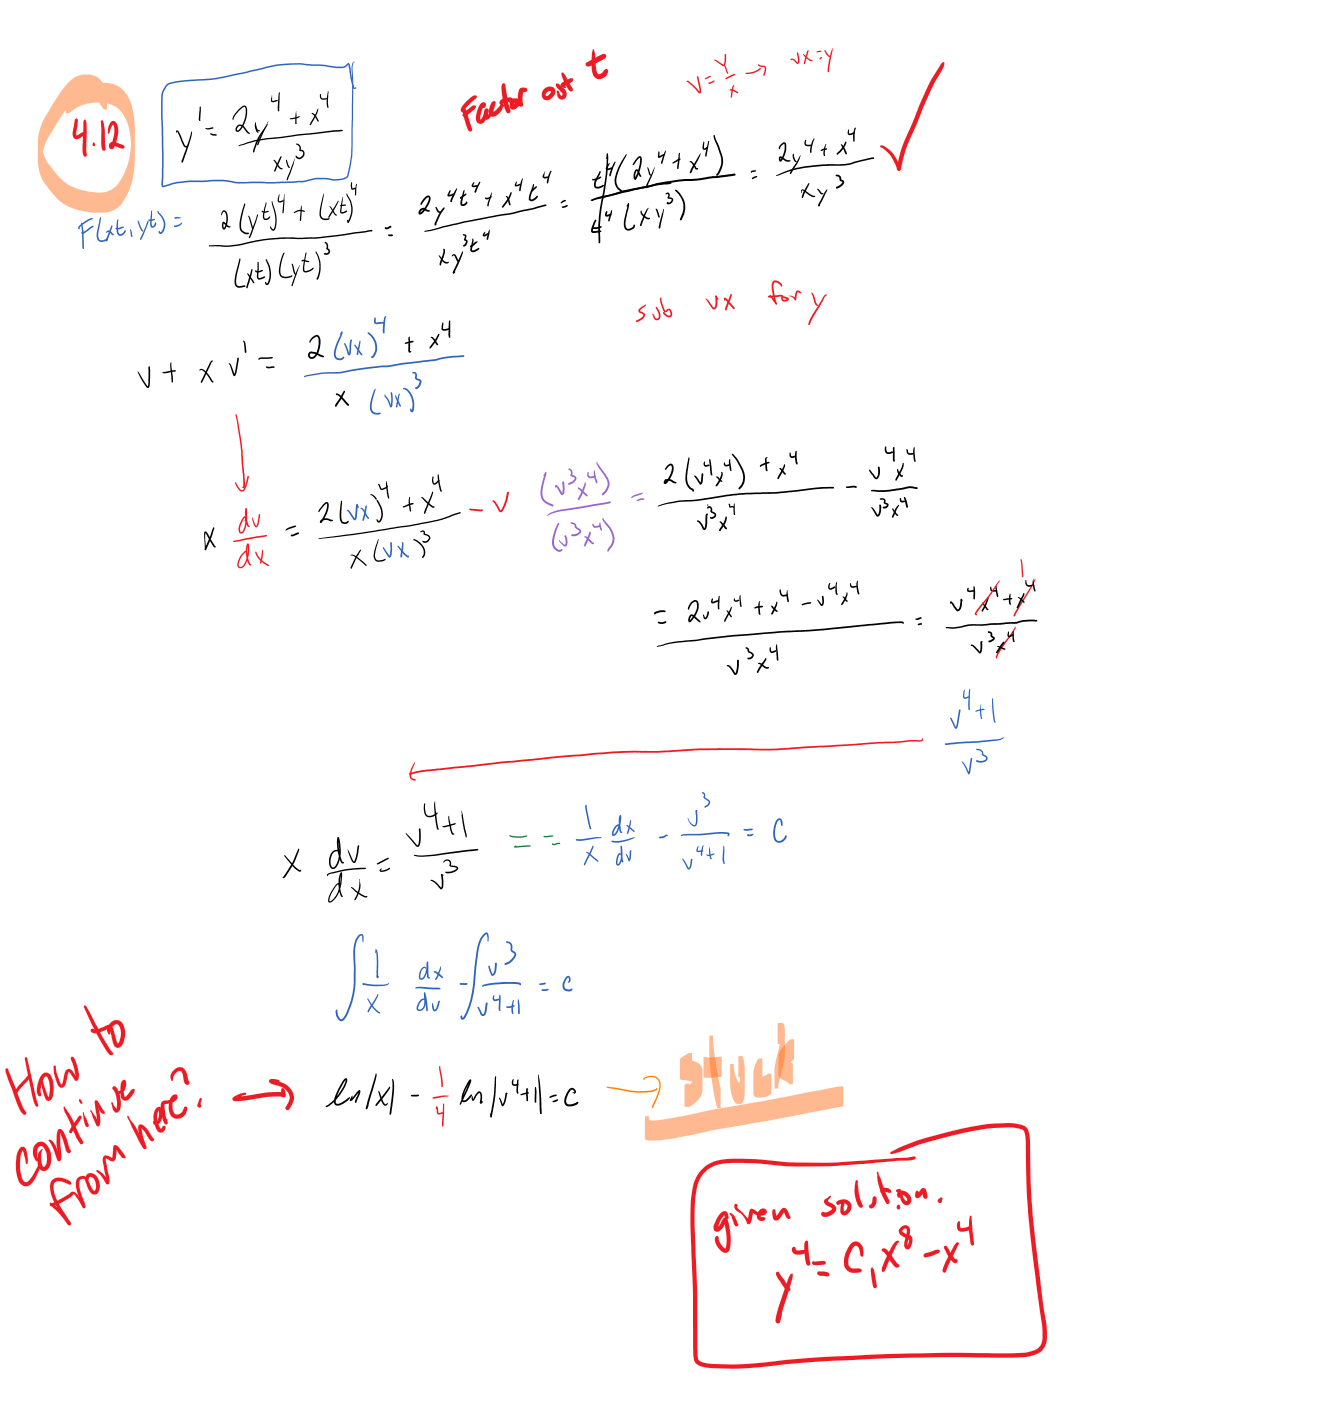 4.12
y' = (2y^4 + x^4)/(xy^3)
Factor out t
v = y/x → vx = y
F(xt, yt) = (2(yt)^4 + (xt)^4)/((xt)(yt)^3) = (2y^4t^4 + x^4t^4)/(xy^3t^4) = (t^4(2y^4 + x^4))/(t^4(xy^3)) = (2y^4 + x^4)/(xy^3) ✓
sub vx for y
v + x v' = (2(vx)^4 + x^4)/(x (vx)^3)
x dv/dx = (2(vx)^4 + x^4)/(x(vx)^3) - v (v^3x^4)/(v^3x^4) = (2(v^4x^4) + x^4)/(v^3x^4) - (v^4x^4)/(v^3x^4)
= (2v^4x^4 + x^4 - v^4x^4)/(v^3x^4) = (v^4x^4 + x^4)/(v^3x^4)
1
(v^4+1)/v^3
x dv/dx = (v^4+1)/v^3 == 1/x dx/dv - v^3/(v^4+1) = C
∫ 1/x dx/dv - ∫ v^3/(v^4+1) = c
How to
continue
from here?
→ ln|x| - 1/4 ln|v^4+1| = c → stuck
given solution.
y^4 = C₁x^8 - x^4